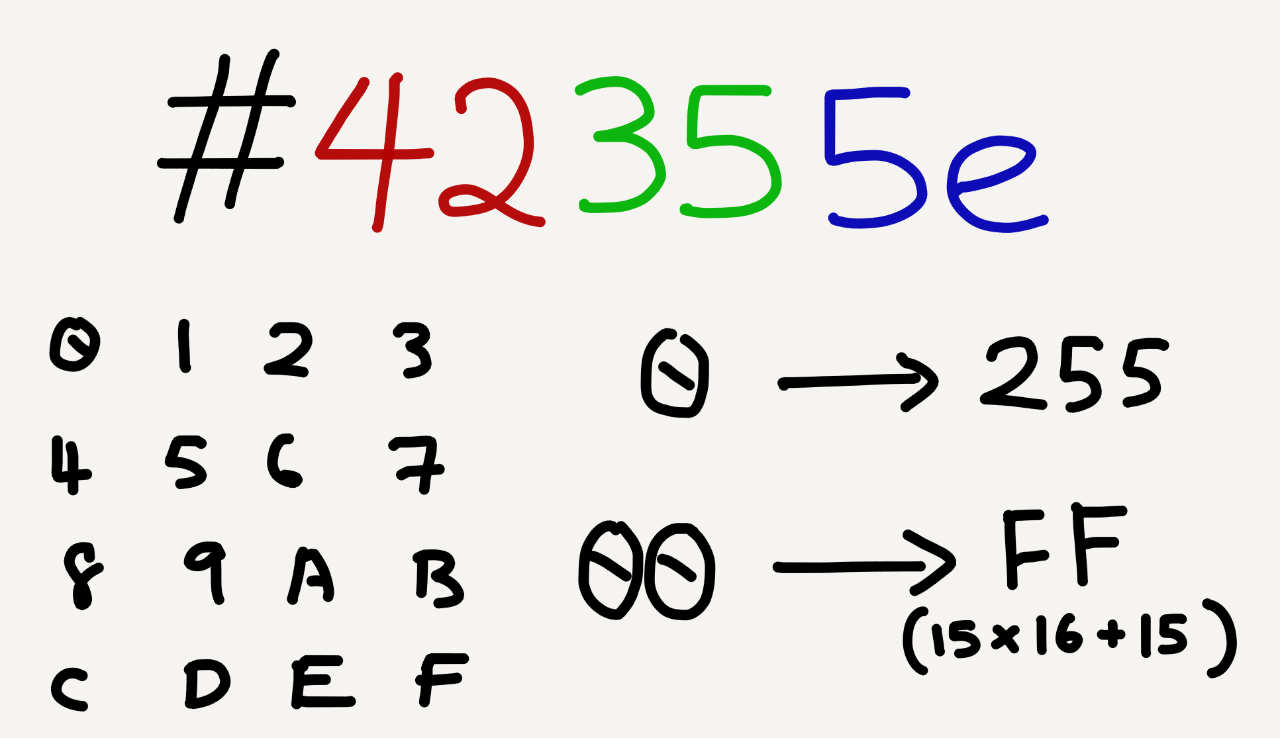 #42355e
0 1 2 3
4 5 6 7
8 9 A B
C D E F
0 → 255
00 → FF
(15×16+15)